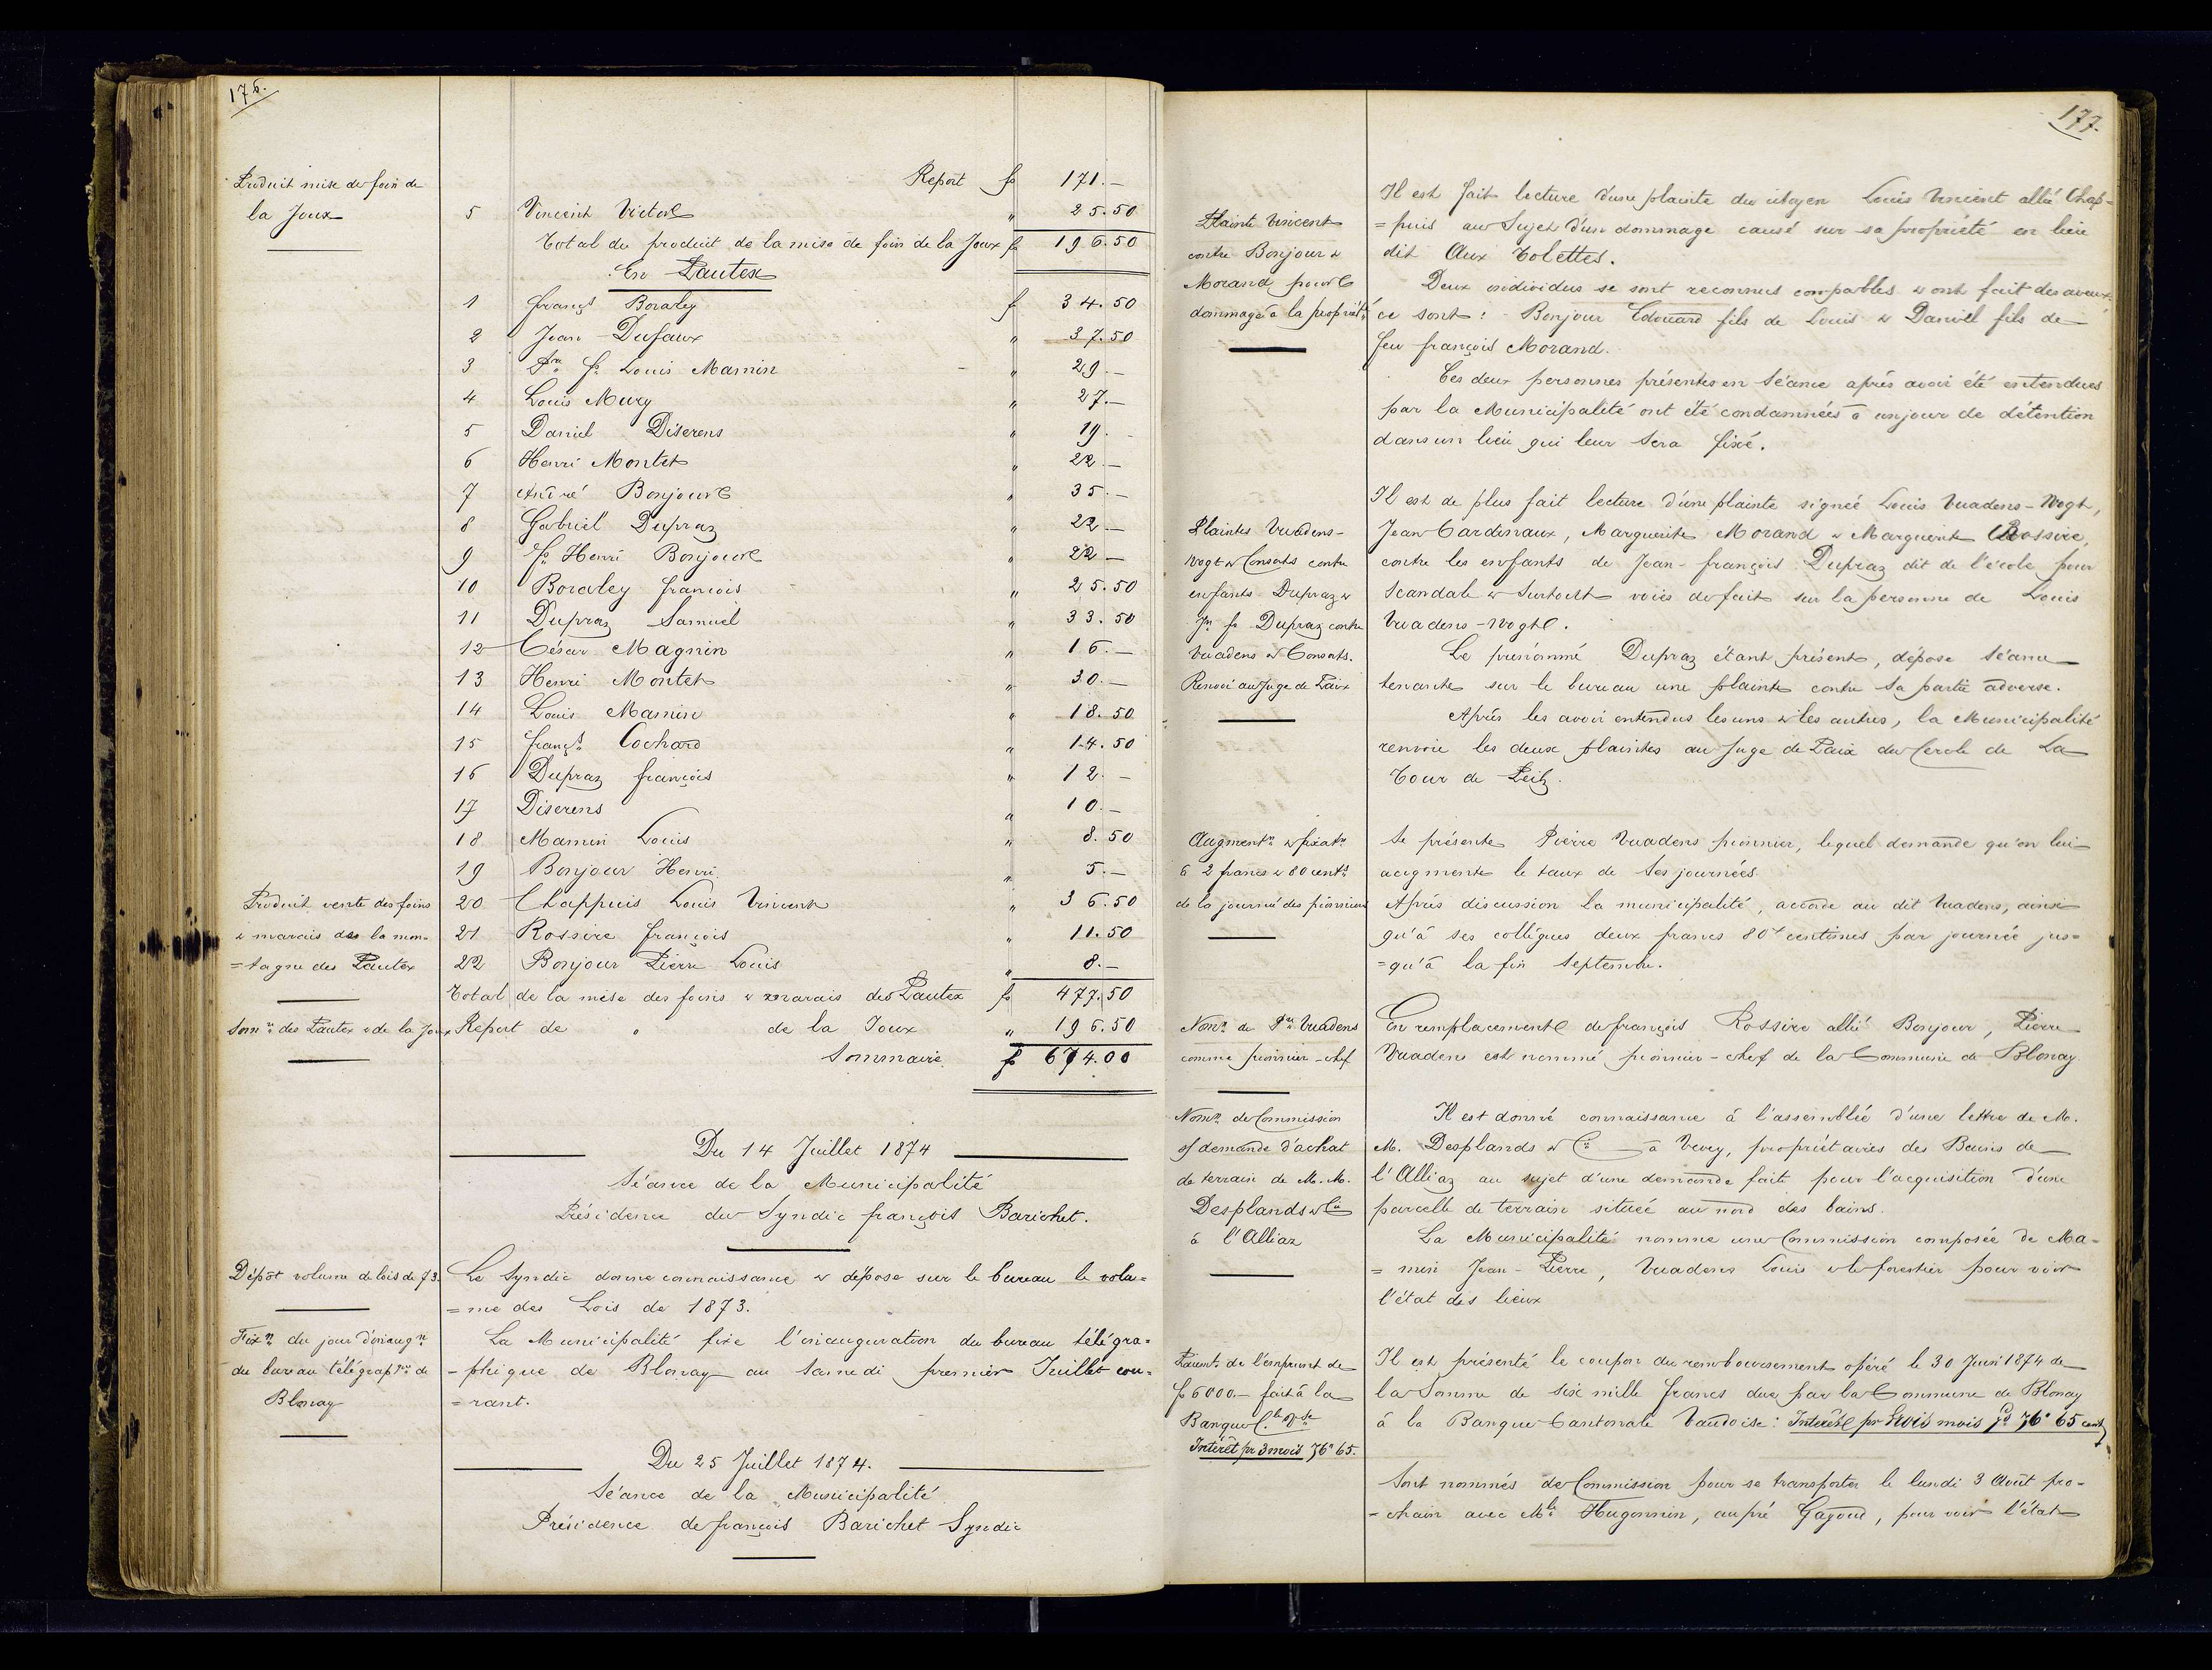 176.
Produit mise de foin de
la Joux
Report fr 171.—
5 Vincent Victor " 25.50
Total du produit de la mise de foin de la Joux fr 196.50
En Pautex
1 françs Boraley f 34.50
2 Jean Dufaux " 37.50
3 Jn fs Louis Mamin " 29.—
4 Louis Mury " 27.—
5 Daniel Diserens " 19.-
6 Henri Montet " 22.—
7 André Bonjour " 35.—
8 Gabriel Dupraz " 22.—
9 fs Henri Bonjour " 22—
10 Boraley francois " 25.50
11 Dupraz Samuel " 33.50
12 César Magnin " 16.—
13 Henri Montet " 30.—
14 Louis Mamin " 18.50
15 françs Cochard " 14.50
16 Dupraz françois " 12.—
17 Diserens " 10.—
18 Mamin Louis " 8.50
19 Bonjour Henri " 5.—
20 Chappuis Louis Vincent " 36.50
21 Rossire françois " 11.50
22 Bonjour Pierre Louis " 8.—
Produit vente des foins
& marais de la mon-
=tagne des Pautex
Total de la mise des foins & marais des Pautex fr 477.50
Somre des Pautex & de la Joux
Report de " de la Joux " 196.50
Sommaire fr 674.00
Du 14 Juillet 1874
Séance de la Municipalité
Présidence du Syndic françois Barichet.
Dépôt volume de lois de 73.
Le Syndic donne connaissance & dépose sur le bureau le volu=
=me des Lois de 1873.
Fixn du jour d'inaugn
du bureau télégraphque de
Blonay
La Municipalité fixe l'inauguration du bureau télégra=
-phique de Blonay au samedi premier Juillet cou=
=rant.
Du 25 Juillet 1874.
Séance de la Municipalité
Présidence de françois Barichet Syndic
177.
Plainte Vincent
contre Bonjour &
Morand pour
dommage à la propriété
Il est fait lecture d'une plainte du citoyen Louis Vincent allié Chap=
=puis au Sujet d'un dommage causé sur sa propriété en lieu
dit Aux Tolettes.
Deux individus se sont reconnus coupables & ont fait des aveux,
ce sont: Bonjour Edouard fils de Louis & Daniel fils de
feu françois Morand.
Ces deux personnes présentes en séance après avoir été entendues
par la Municipalité ont été condamnées à un jour de détention
dans un lieu qui leur sera fixé.
Plaintes Vuadens-
Vogt & Consorts contre
enfants Dupraz &
Jn fs Dupraz contre
Vuadens & Consorts.
Renvoi au Juge de Paix
Il est de plus fait lecture d'une plainte signée Louis Vuadens-Vogt,
Jean Cardinaux, Marguerite Morand & Marguerite Rossire,
contre les enfants de Jean-françois Dupraz dit de l'école pour
Scandale & Surtout voies de fait sur la personne de Louis
Vuadens-Vogt.
Le prénommé Dupraz étant présent, dépose séance
tenante sur le bureau une plainte contre sa partie adverse.
Après les avoir entendus les uns & les autres, la Municipalité
renvoie les deux plaintes au Juge de Paix du Cercle de La
Tour de Peilz.
Augmentn & fixatn
à 2 francs & 80 cents
de la journée des pionniers
Se présente Pierre Vuadens pionnier, lequel demande qu'on lui
augmente le taux de ses journées.
Après discussion la municipalité, accorde au dit Vuadens, ainsi
qu'à ses collègues deux francs 80 centimes par journée jus=
=qu'à la fin Septembre.
Nomn de Pre Vuadens
comme pionnier-chef
En remplacement de françois Rossire allié Bonjour, Pierre
Vuadens est nommé pionnier-chef de la Commune de Blonay
Nomn de Commission
s/ demande d'achat
de terrain de M.M.
Desplands & Cie
à l'Alliaz
Il est donné connaissance à l'assemblée d'une lettre de M.
M. Desplands & Cie à Vevey, propriétaires des Bains de
l'Alliaz au sujet d'une demande faite pour l'acquisition d'une
parcelle de terrain située au nord des bains.
La Municipalité nomme une Commission composée de Ma-
=min Jean-Pierre, Vuadens Louis & le forestier pour voir
l'état des lieux
Paiemt de l'emprunt de
fr 6000.— fait à la
Banque Cle Vse
Intérêt pr 3 mois 76" 65.
Il est présenté le coupon du remboursement opéré le 30 Juin 1874 de
la Somme de six mille francs due par la Commune de Blonay
à la Banque Cantonale Vaudoise: Intérêt pr trois mois fr 76" 65 cent
Sont nommés de Commission pour se transporter le lundi 3 Août pro-
-chain avec Mle Hugonnin, au pré Gagoud, pour voir l'état